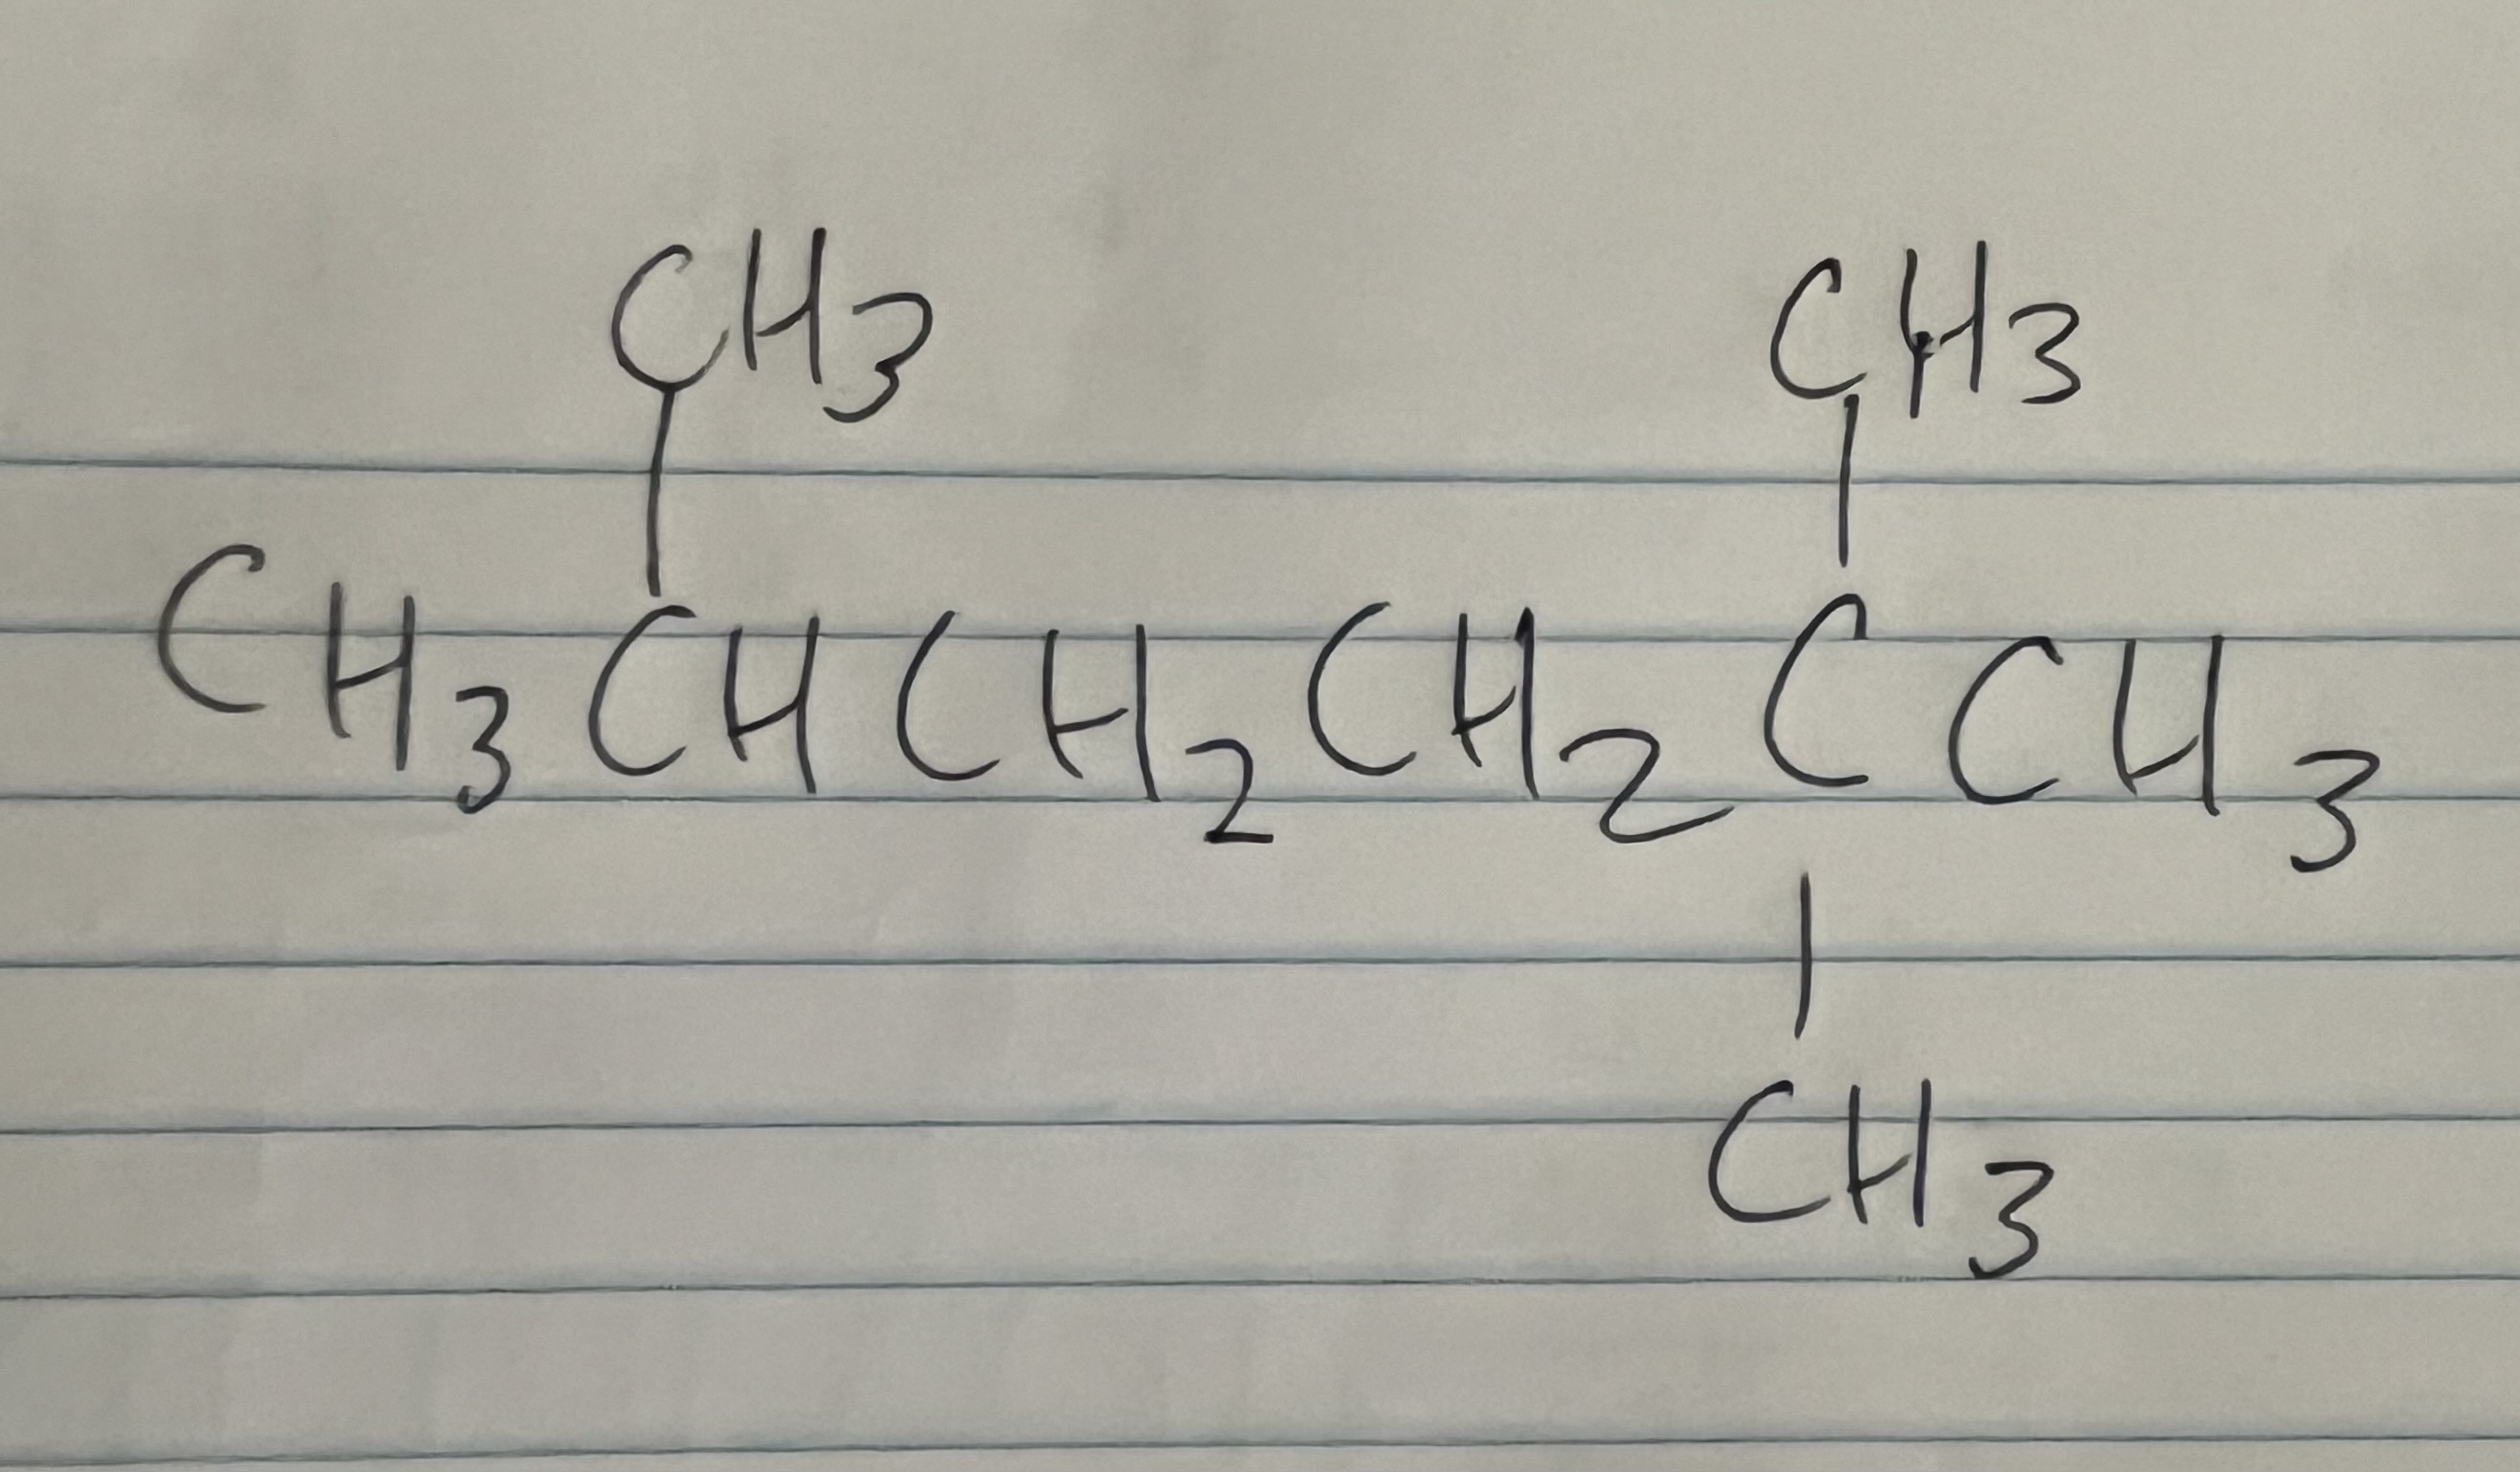 CH3 CH3
CH3CHCH2CH2CCH3
CH3